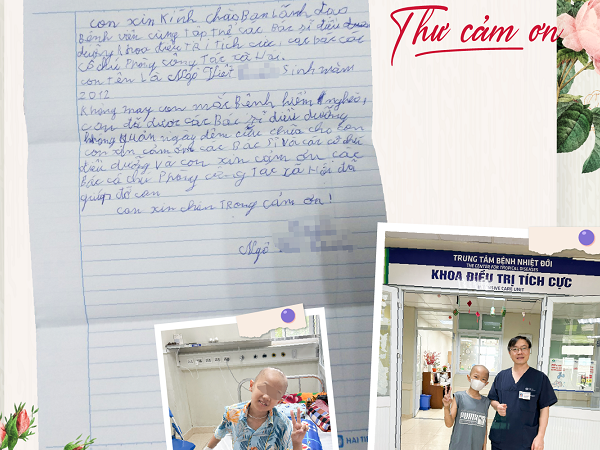 Thư cảm ơn
con xin kính chào Ban Lãnh đạo
Bệnh viện cùng tập thể các Bác sĩ điều dưỡng
dưỡng khoa điều Trị Tích cực, các bác các
cô chú Phòng công Tác xã Hội.
con tên là Ngô Việt sinh năm
2012
Không may con mắc Bệnh hiểm nghèo,
con đã được các Bác sĩ điều dưỡng
không quản ngày đêm cứu chữa cho con
con xin cảm ơn các Bác sĩ và các cô chú
điều dưỡng và con xin cảm ơn các
Bác cô chú Phòng công Tác xã Hội đã
giúp đỡ con
con xin chân Trọng cảm ơn!
Ngô
TRUNG TÂM BỆNH NHIỆT ĐỚI
THE CENTER FOR TROPICAL DISEASES
KHOA ĐIỀU TRỊ TÍCH CỰC
CARE UNIT
PUMA
HẢI